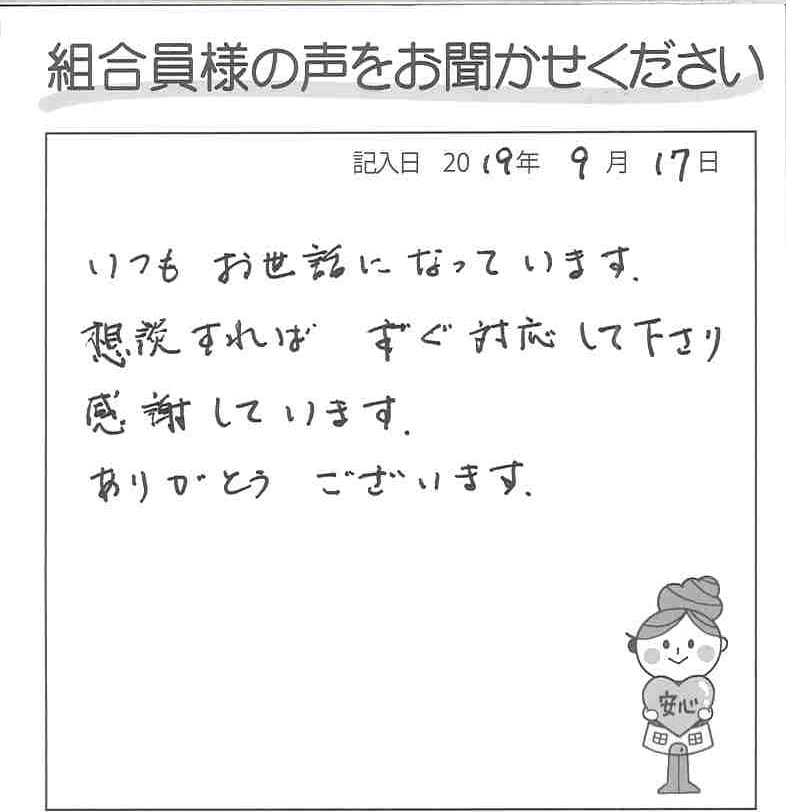 組合員様の声をお聞かせください
記入日 2019年 9月 17日
いつも お世話になっています.
想談すれば すぐ対応して下さり
感謝しています.
ありがとう ございます.
安心